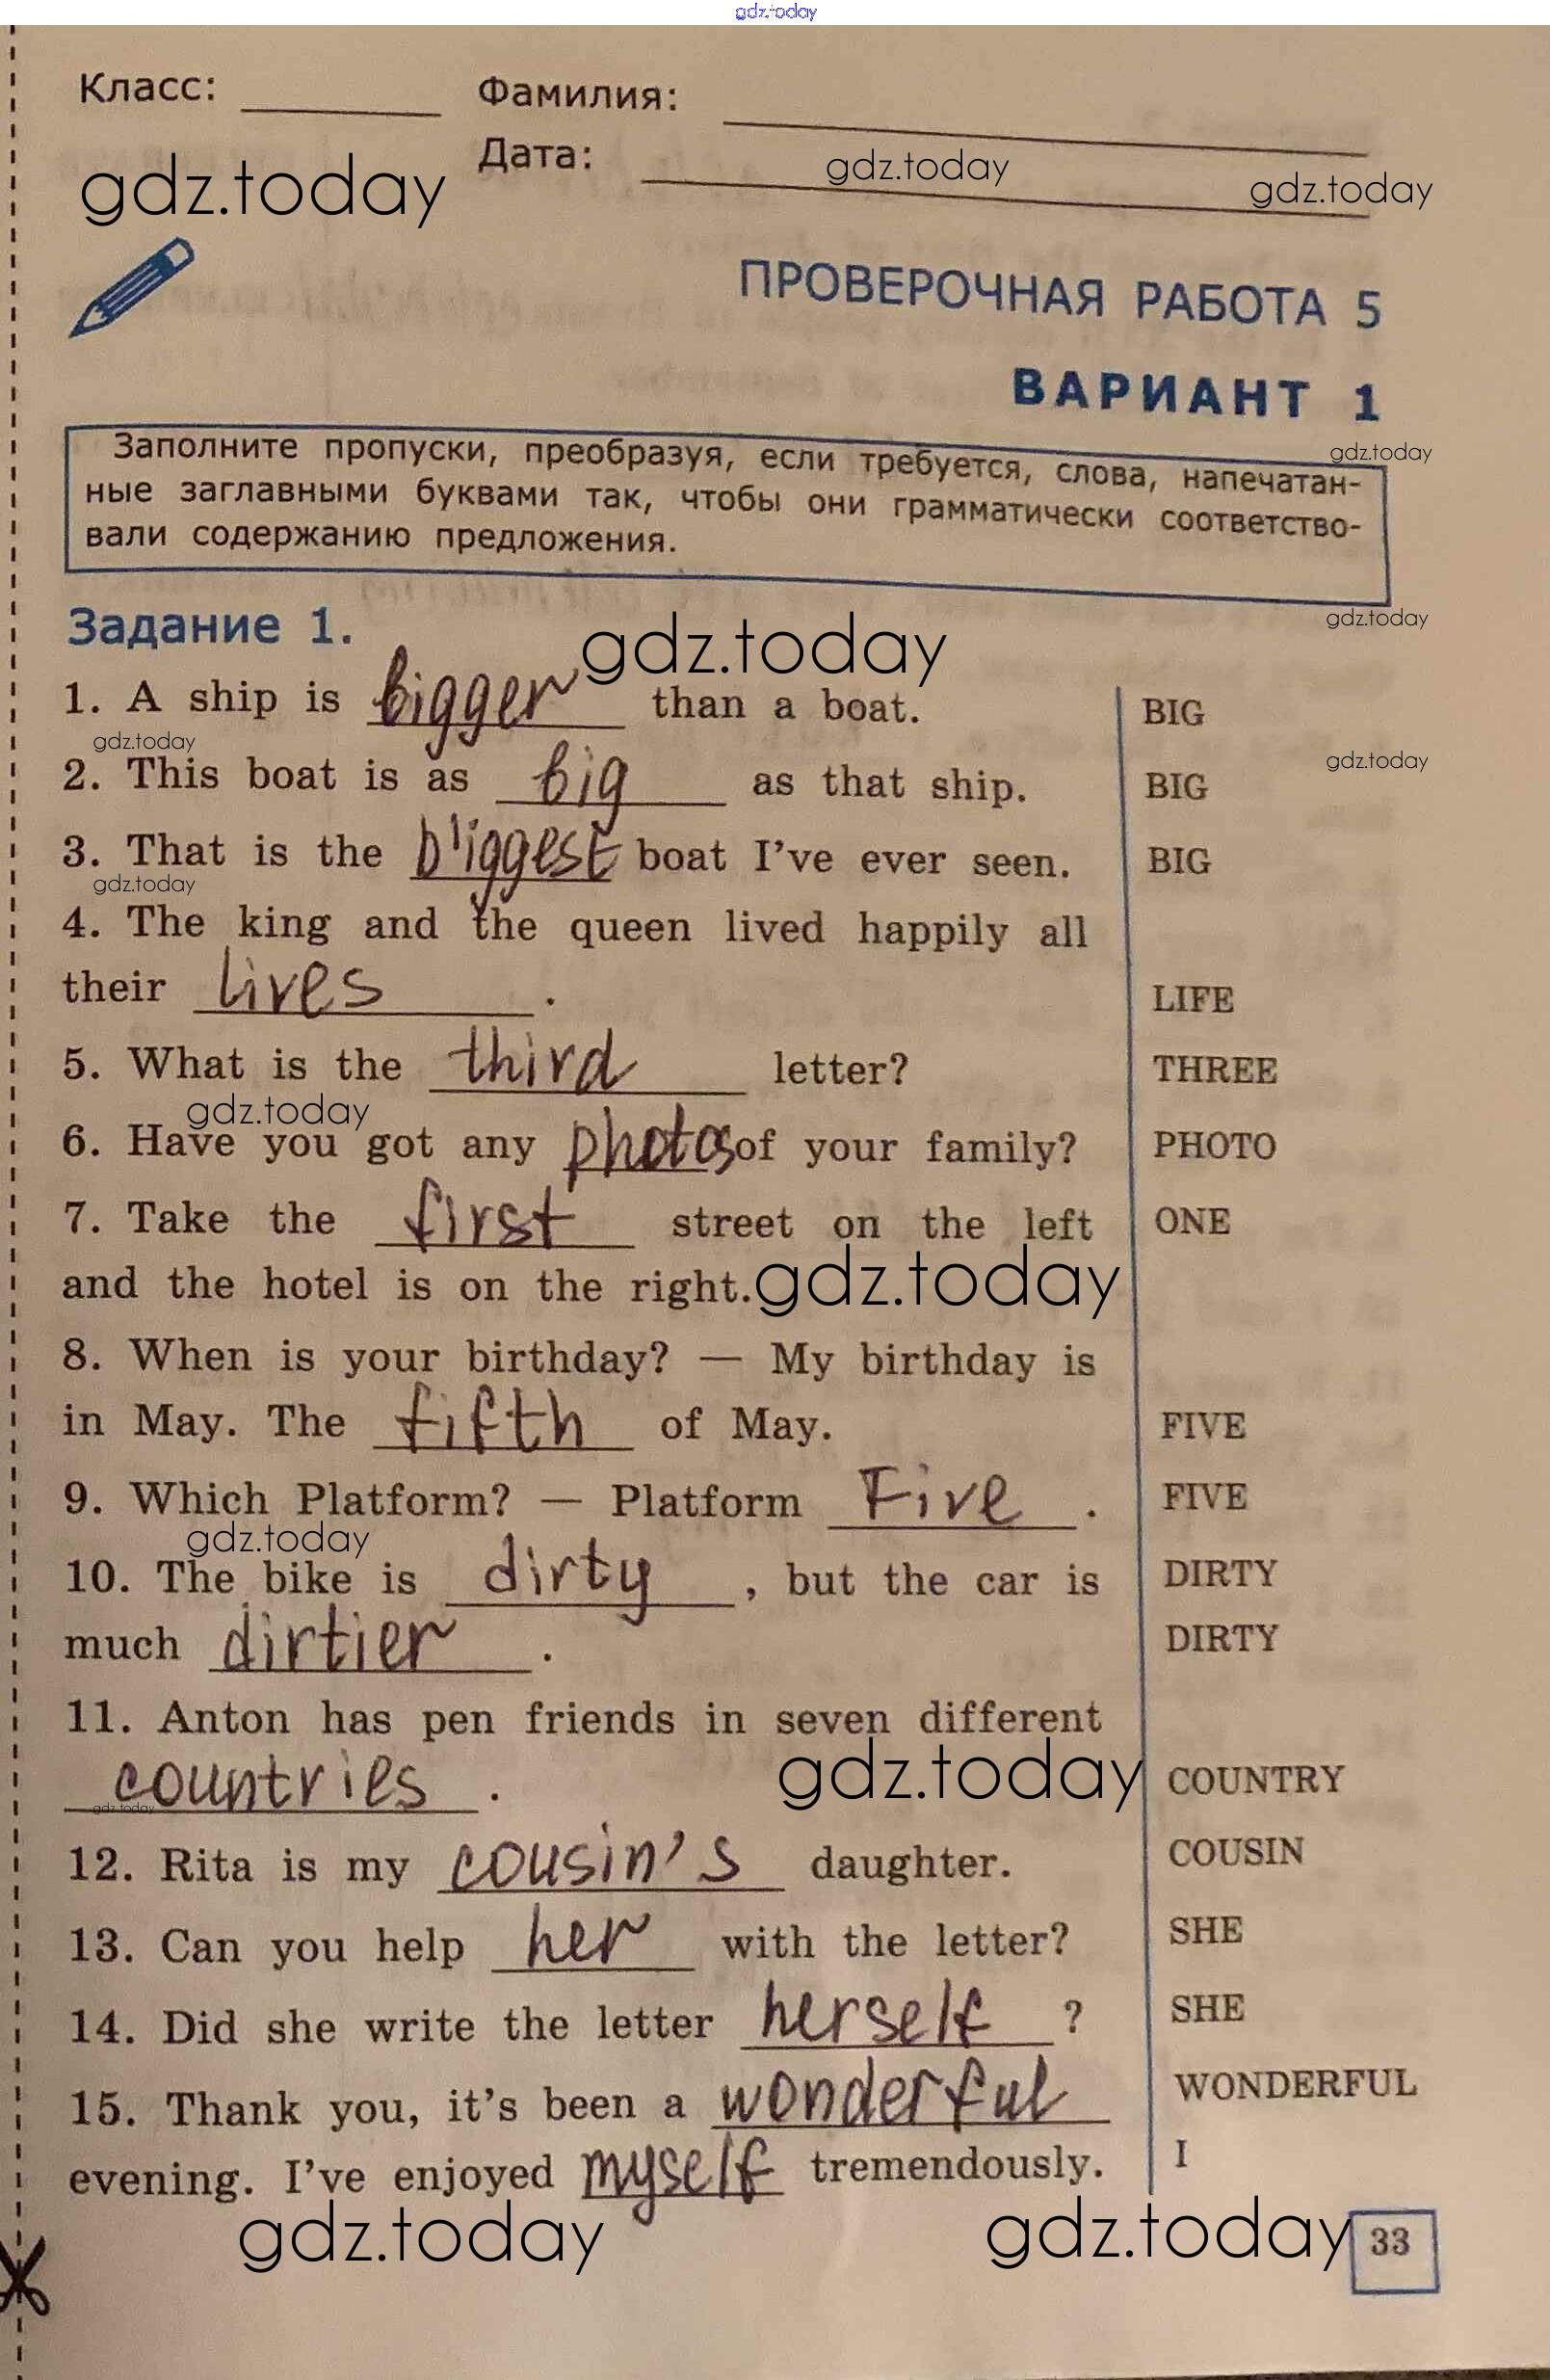 gdz.today
Класс: Фамилия:
Дата:
gdz.today gdz.today gdz.today
ПРОВЕРОЧНАЯ РАБОТА 5
ВАРИАНТ 1
gdz.today
Заполните пропуски, преобразуя, если требуется, слова, напечатан-
ные заглавными буквами так, чтобы они грамматически соответство-
вали содержанию предложения.
gdz.today
Задание 1.
gdz.today
1. A ship is bigger than a boat. BIG
gdz.today gdz.today
2. This boat is as big as that ship. BIG
3. That is the biggest boat I've ever seen. BIG
gdz.today
4. The king and the queen lived happily all
their lives. LIFE
5. What is the third letter? THREE
gdz.today
6. Have you got any photos of your family? PHOTO
7. Take the first street on the left ONE
and the hotel is on the right.
gdz.today
8. When is your birthday? — My birthday is
in May. The fifth of May. FIVE
9. Which Platform? — Platform Five. FIVE
gdz.today
10. The bike is dirty, but the car is DIRTY
much dirtier. DIRTY
11. Anton has pen friends in seven different
gdz.today
countries. COUNTRY
gdz.today
12. Rita is my cousin's daughter. COUSIN
13. Can you help her with the letter? SHE
14. Did she write the letter herself? SHE
15. Thank you, it's been a wonderful WONDERFUL
evening. I've enjoyed myself tremendously. I
gdz.today gdz.today
33